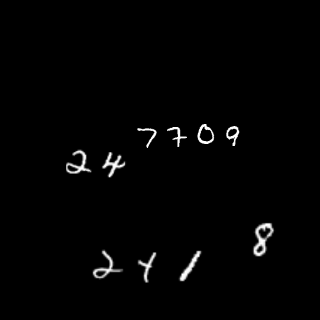 7709
24
8
241